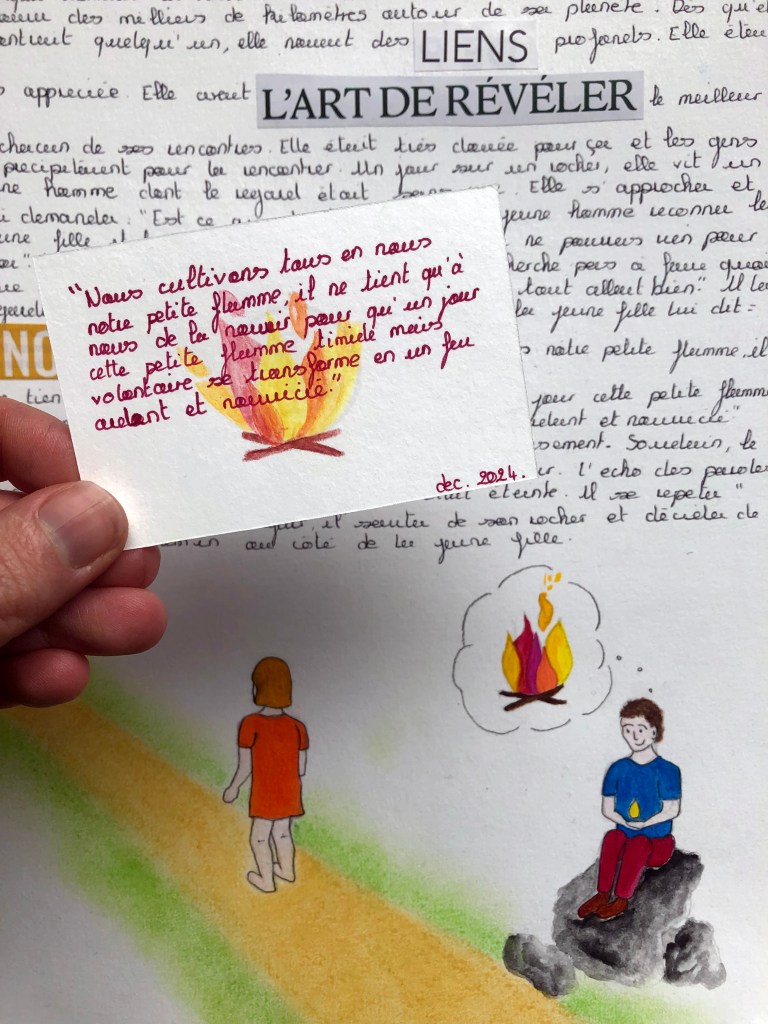 des milliers de kilomètres autour de sa planète. Dès qu'el
quelqu'un, elle nouait des LIENS profonds. Elle éten
appréciée. Elle avait L'ART DE RÉVÉLER le meilleur
chacun de ses rencontres. Elle était très douée pour ça et les gens
précipitèrent pour la rencontrer. Un jour sur un rocher, elle vit un
ne homme dont le regard était Elle s'approcha et
i demanda : "Est ce jeune homme reconnu le
une fille et ne pouvais rien pour
cherche pas à faire quoi
tout allait bien". Il le
la jeune fille lui dit :
NO
notre petite flamme, il
tien jour cette petite flamme
ardent et nourricié"
sement. Soudain, le
L'écho des paroles
éteinte. Il se répéta "
il sauta de son rocher et décida de
au côté de la jeune fille.
"Nous cultivons tous en nous
notre petite flamme, il ne tient qu'à
nous de la nourir pour qu'un jour
cette petite flamme timide mais
volontaire se transforme en un feu
ardent et nourricié."
dec. 2024.